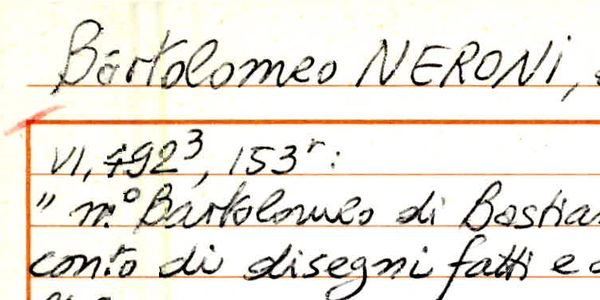 Bartolomeo NERONI,
VI, 492³, 153ʳ:
" m.º Bartolomeo di Bastia
conto di disegni fatti e